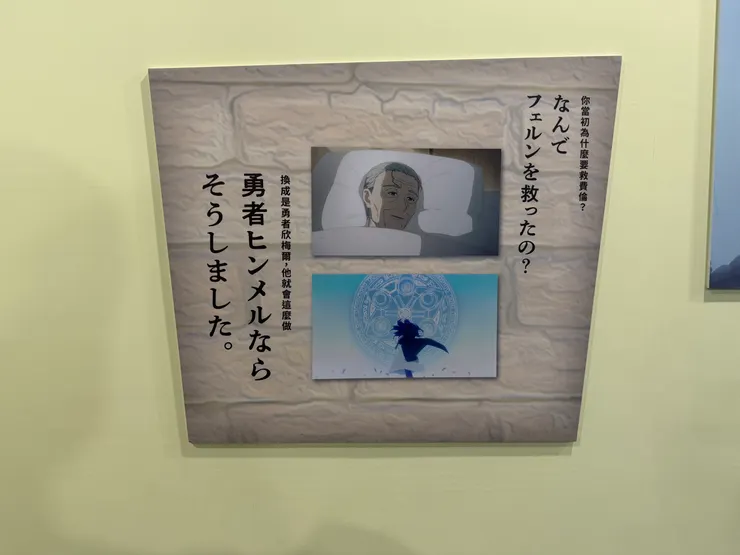 你當初為什麼要救費倫？
なんで
フェルンを救ったの？
換成是勇者欣梅爾，他就會這麼做
勇者ヒンメルなら
そうしました。